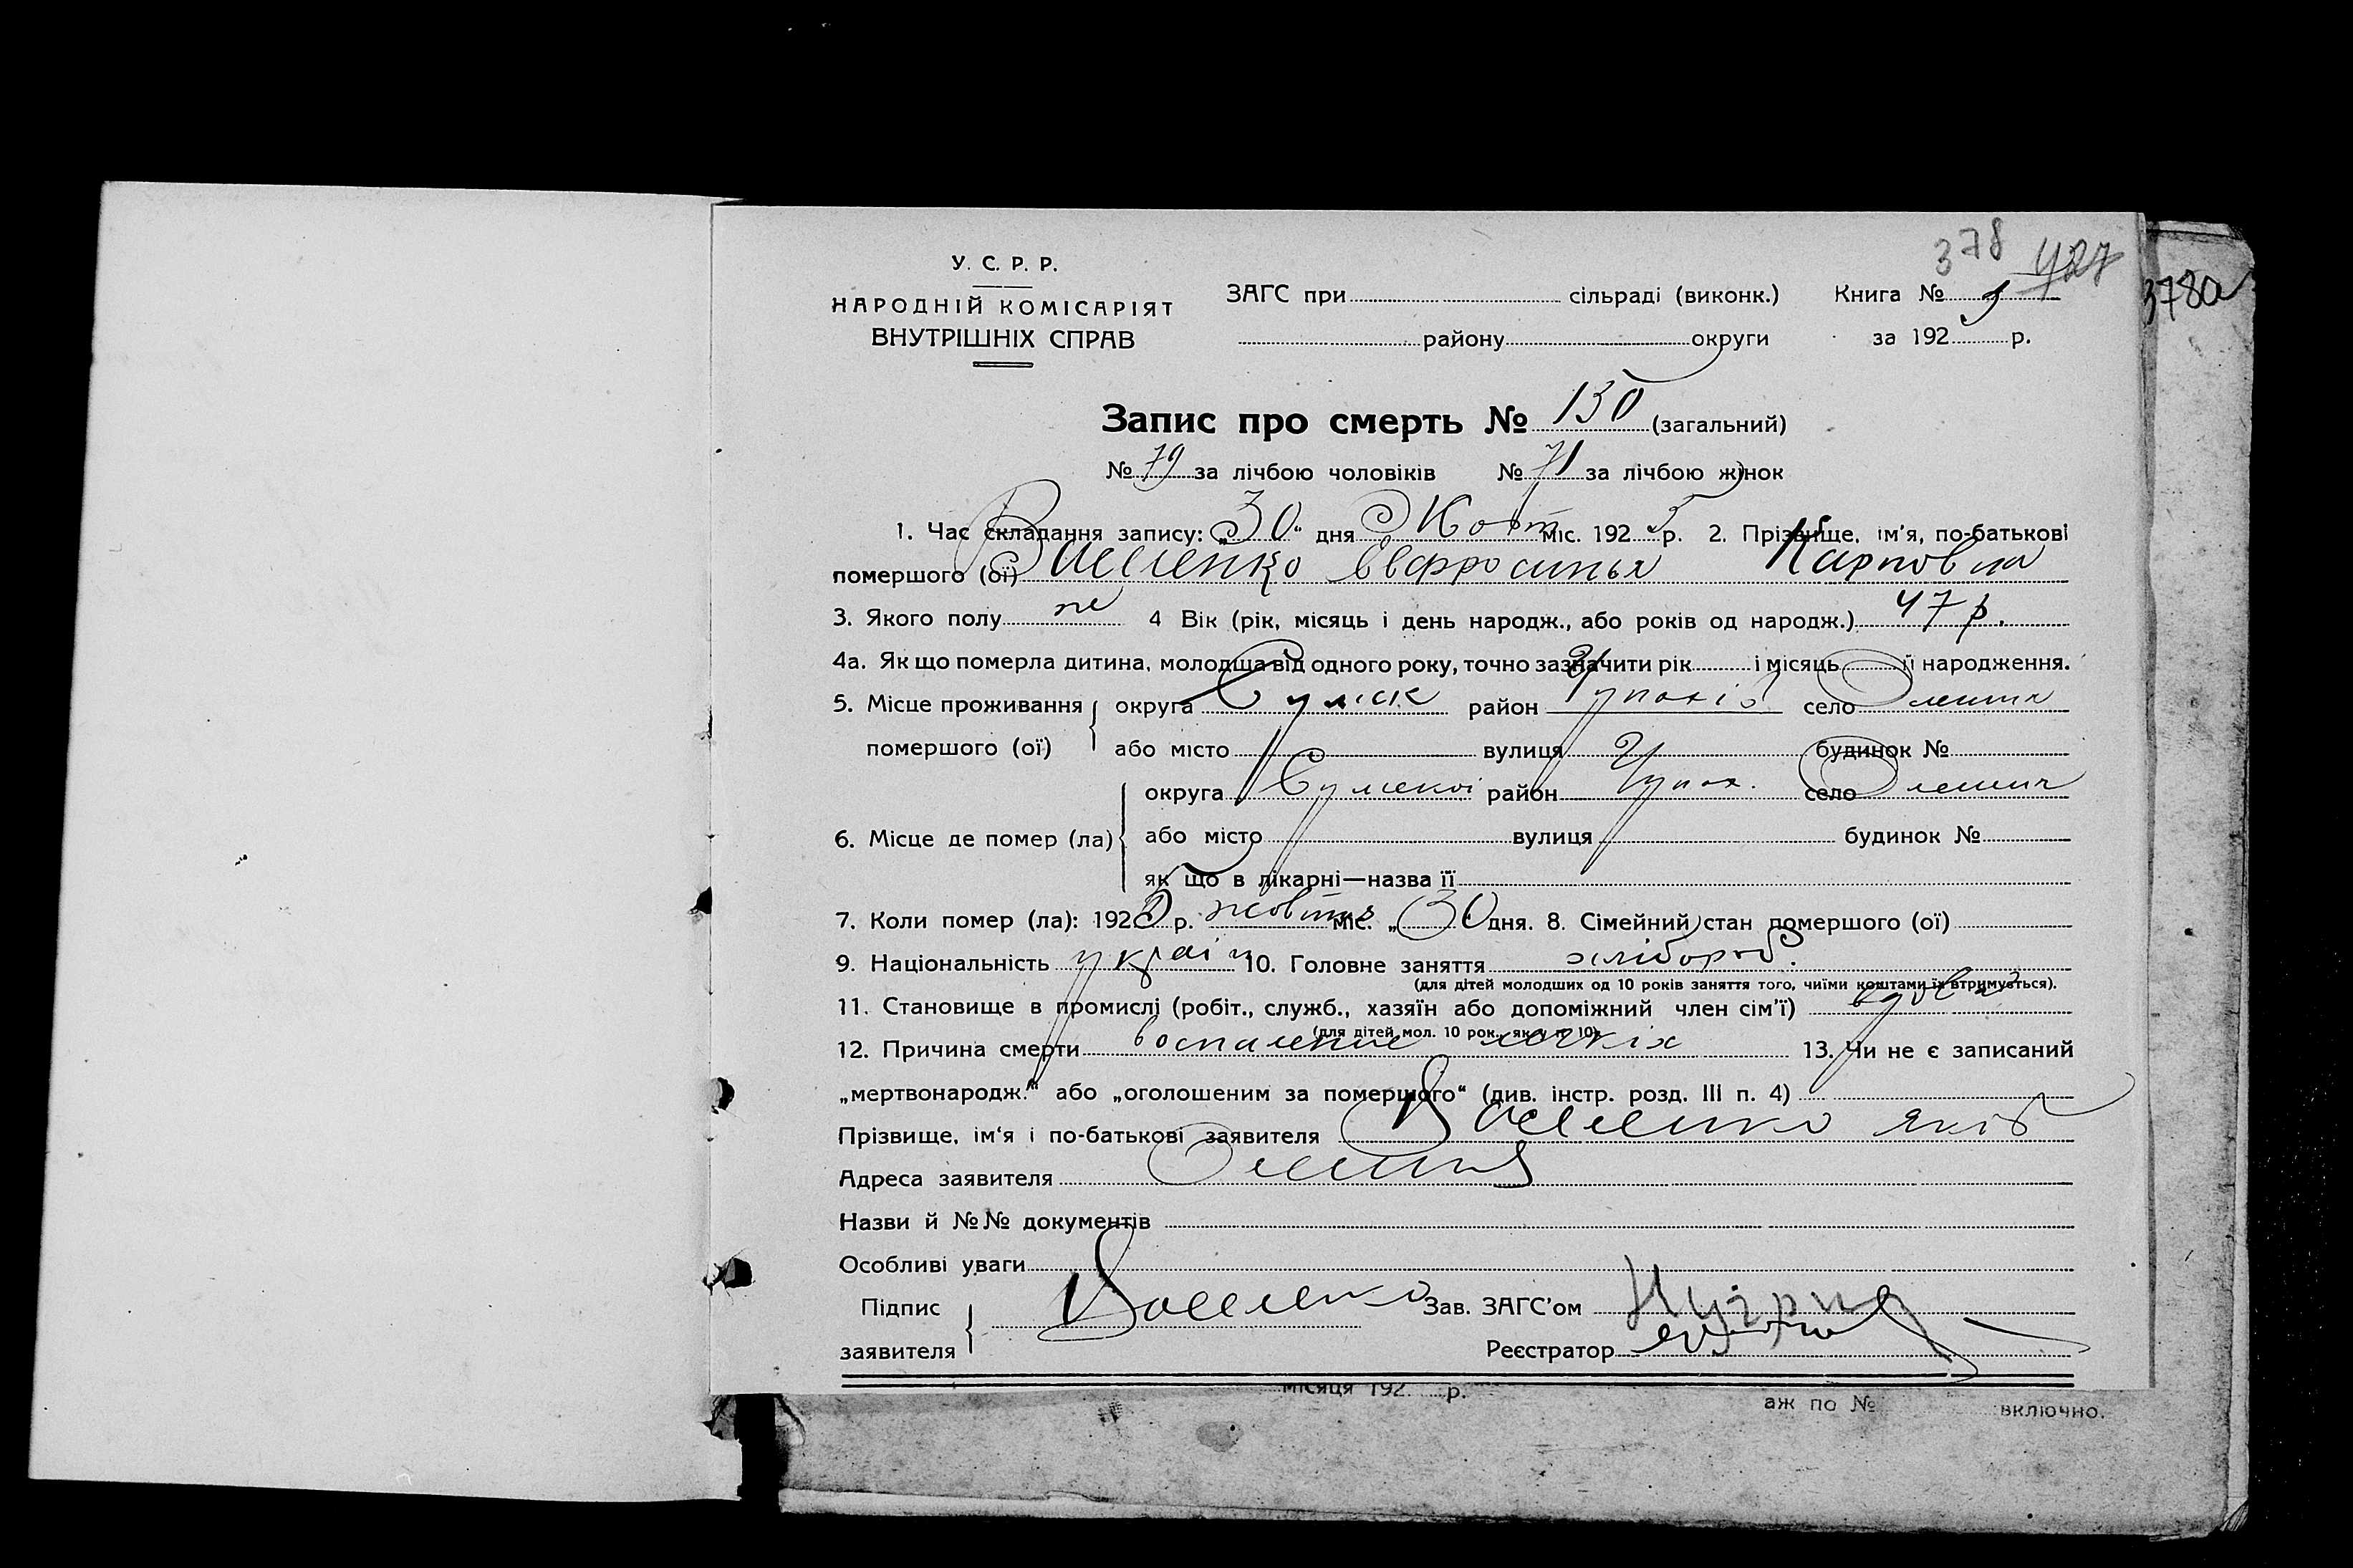 378 427
У. С. Р. Р.
НАРОДНІЙ КОМІСАРІЯТ
ВНУТРІШНІХ СПРАВ
ЗАГС при сільраді (виконк.) Книга №
378а
району округи за 192 р.
Запис про смерть № 150 (загальний)
№ 79 за лічбою чоловіків № 71 за лічбою жінок
1. Час складання запису: „30“ дня Жовт міс. 1925 р. 2. Прізвище, ім'я, по-батькові
помершого (ої) Василенко Евфросинья Карповна
3. Якого полу ж 4 Вік (рік, місяць і день народж., або років од народж.) 47 р.
4а. Як що померла дитина, молодша від одного року, точно зазначити рік і місяць її народження.
5. Місце проживання помершого (ої)
округа Сумск район село
або місто вулиця будинок №
6. Місце де помер (ла)
округа Сумской район село
або місто вулиця будинок №
як що в лікарні—назва її
7. Коли помер (ла): 1925 р. жовтня міс. „30 дня. 8. Сімейний стан помершого (ої)
9. Національність україн 10. Головне заняття хлібороб.
(для дітей молодших од 10 років заняття того, чиїми коштами їх втримується).
11. Становище в промислі (робіт., служб., хазяїн або допоміжний член сім'ї) вдова
(для дітей мол. 10 рок., як у п. 10).
12. Причина смерти воспаление легких 13. Чи не є записаний
„мертвонародж.“ або „оголошеним за померщого“ (див. інстр. розд. III п. 4)
Прізвище, ім'я і по-батькові заявителя Василенко Яків
Адреса заявителя
Назви й №№ документів
Особливі уваги
Підпис заявителя Василенко Зав. ЗАГС'ом
Реєстратор
місяця 192 р. аж по № включно.